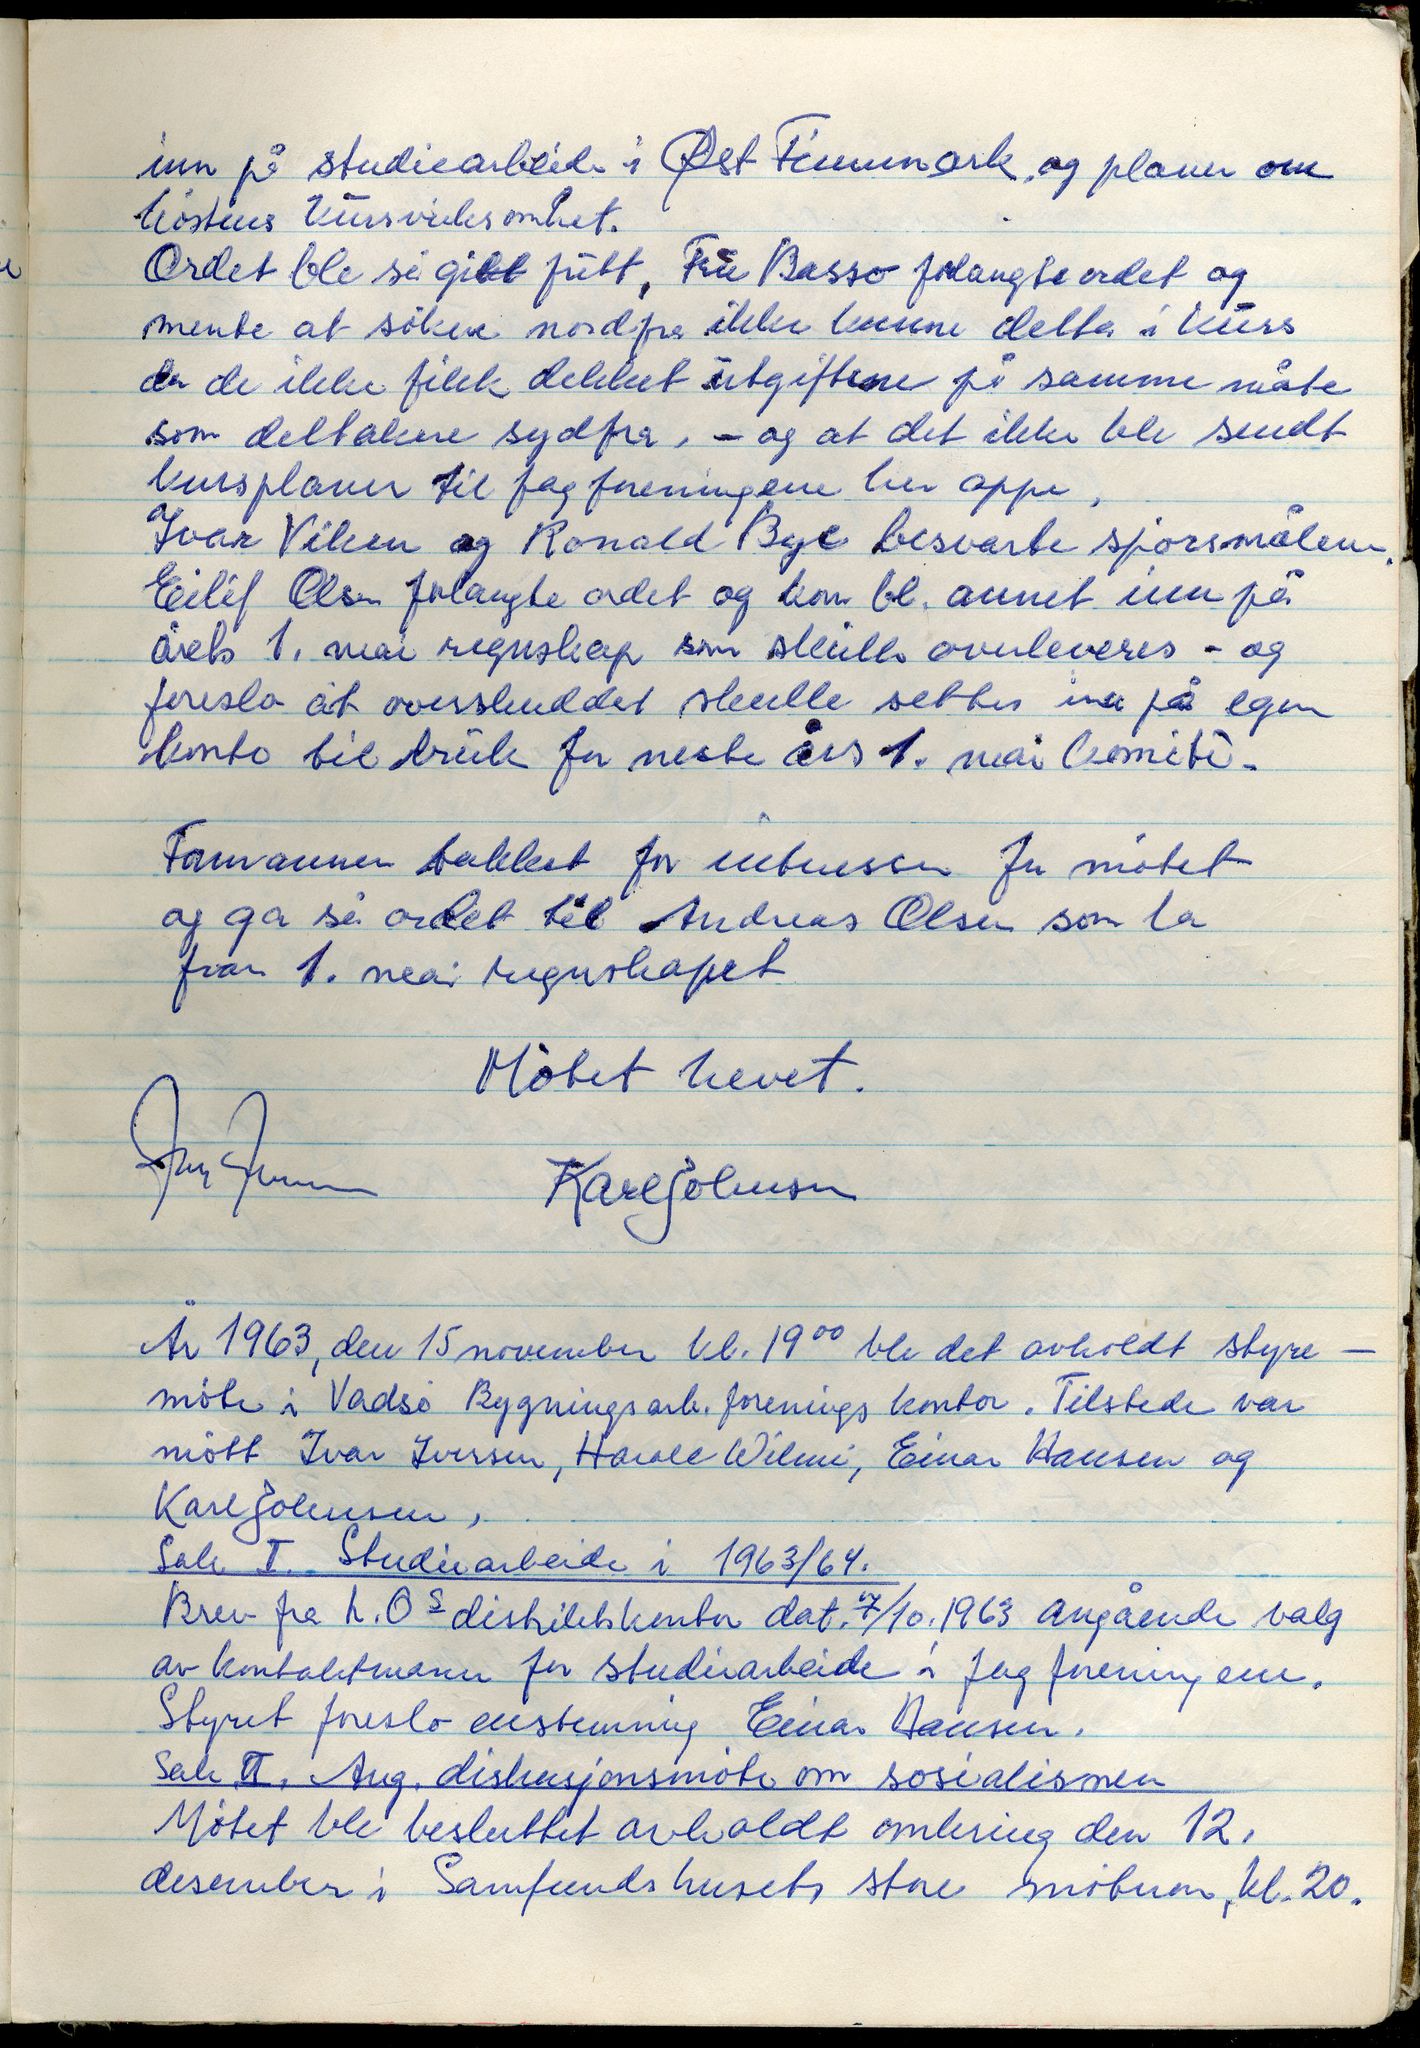 inn på studiearbeide i Øst Finnmark, og planer om
höstens kursvirksomhet.
Ordet ble så gitt fritt, Fru Basso forlangte ordet og
mente at sökere nordfra ikke kunne delta i kurs
da de ikke fikk dekket utgiftene på samme måte
som deltakere sydfra, - og at det ikke ble sendt
kursplaner til fagforeningene her oppe,
Ivar Viken og Ronald Bye besvarte spörsmålene.
Eilif Olsen forlangte ordet og kom bl. annet inn på
årets 1. mai regnskap som skulle overleveres - og
foreslo at overskuddet skulle settes inn på egen
konto til bruk for neste års 1. mai komite.
Formannen takket for interessen for mötet
og ga så ordet til Andreas Olsen som la
fram 1. mai regnskapet
Mötet hevet.
Karl Johnsen
År 1963, den 15 november kl. 19⁰⁰ ble det avholdt styre -
möte i Vadsö Bygningsarb. forenings kontor. Tilstede var
mött Ivar Iversen, Harald Wilmi, Einar Hansen og
Karl Johnsen,
Sak I. Studiearbeide i 1963/64.
Brev fra L.Oˢ distriktskontor dat. 17/10.1963 angående valg
av kontaktmann for studiearbeide i fagforeningene.
Styret foreslo enstemmig Einar Hansen.
Sak II. Ang. diskusjonsmöte om sosialismen
Mötet ble besluttet avholdt omkring den 12.
desember i Samfundshusets store möterom, kl. 20.